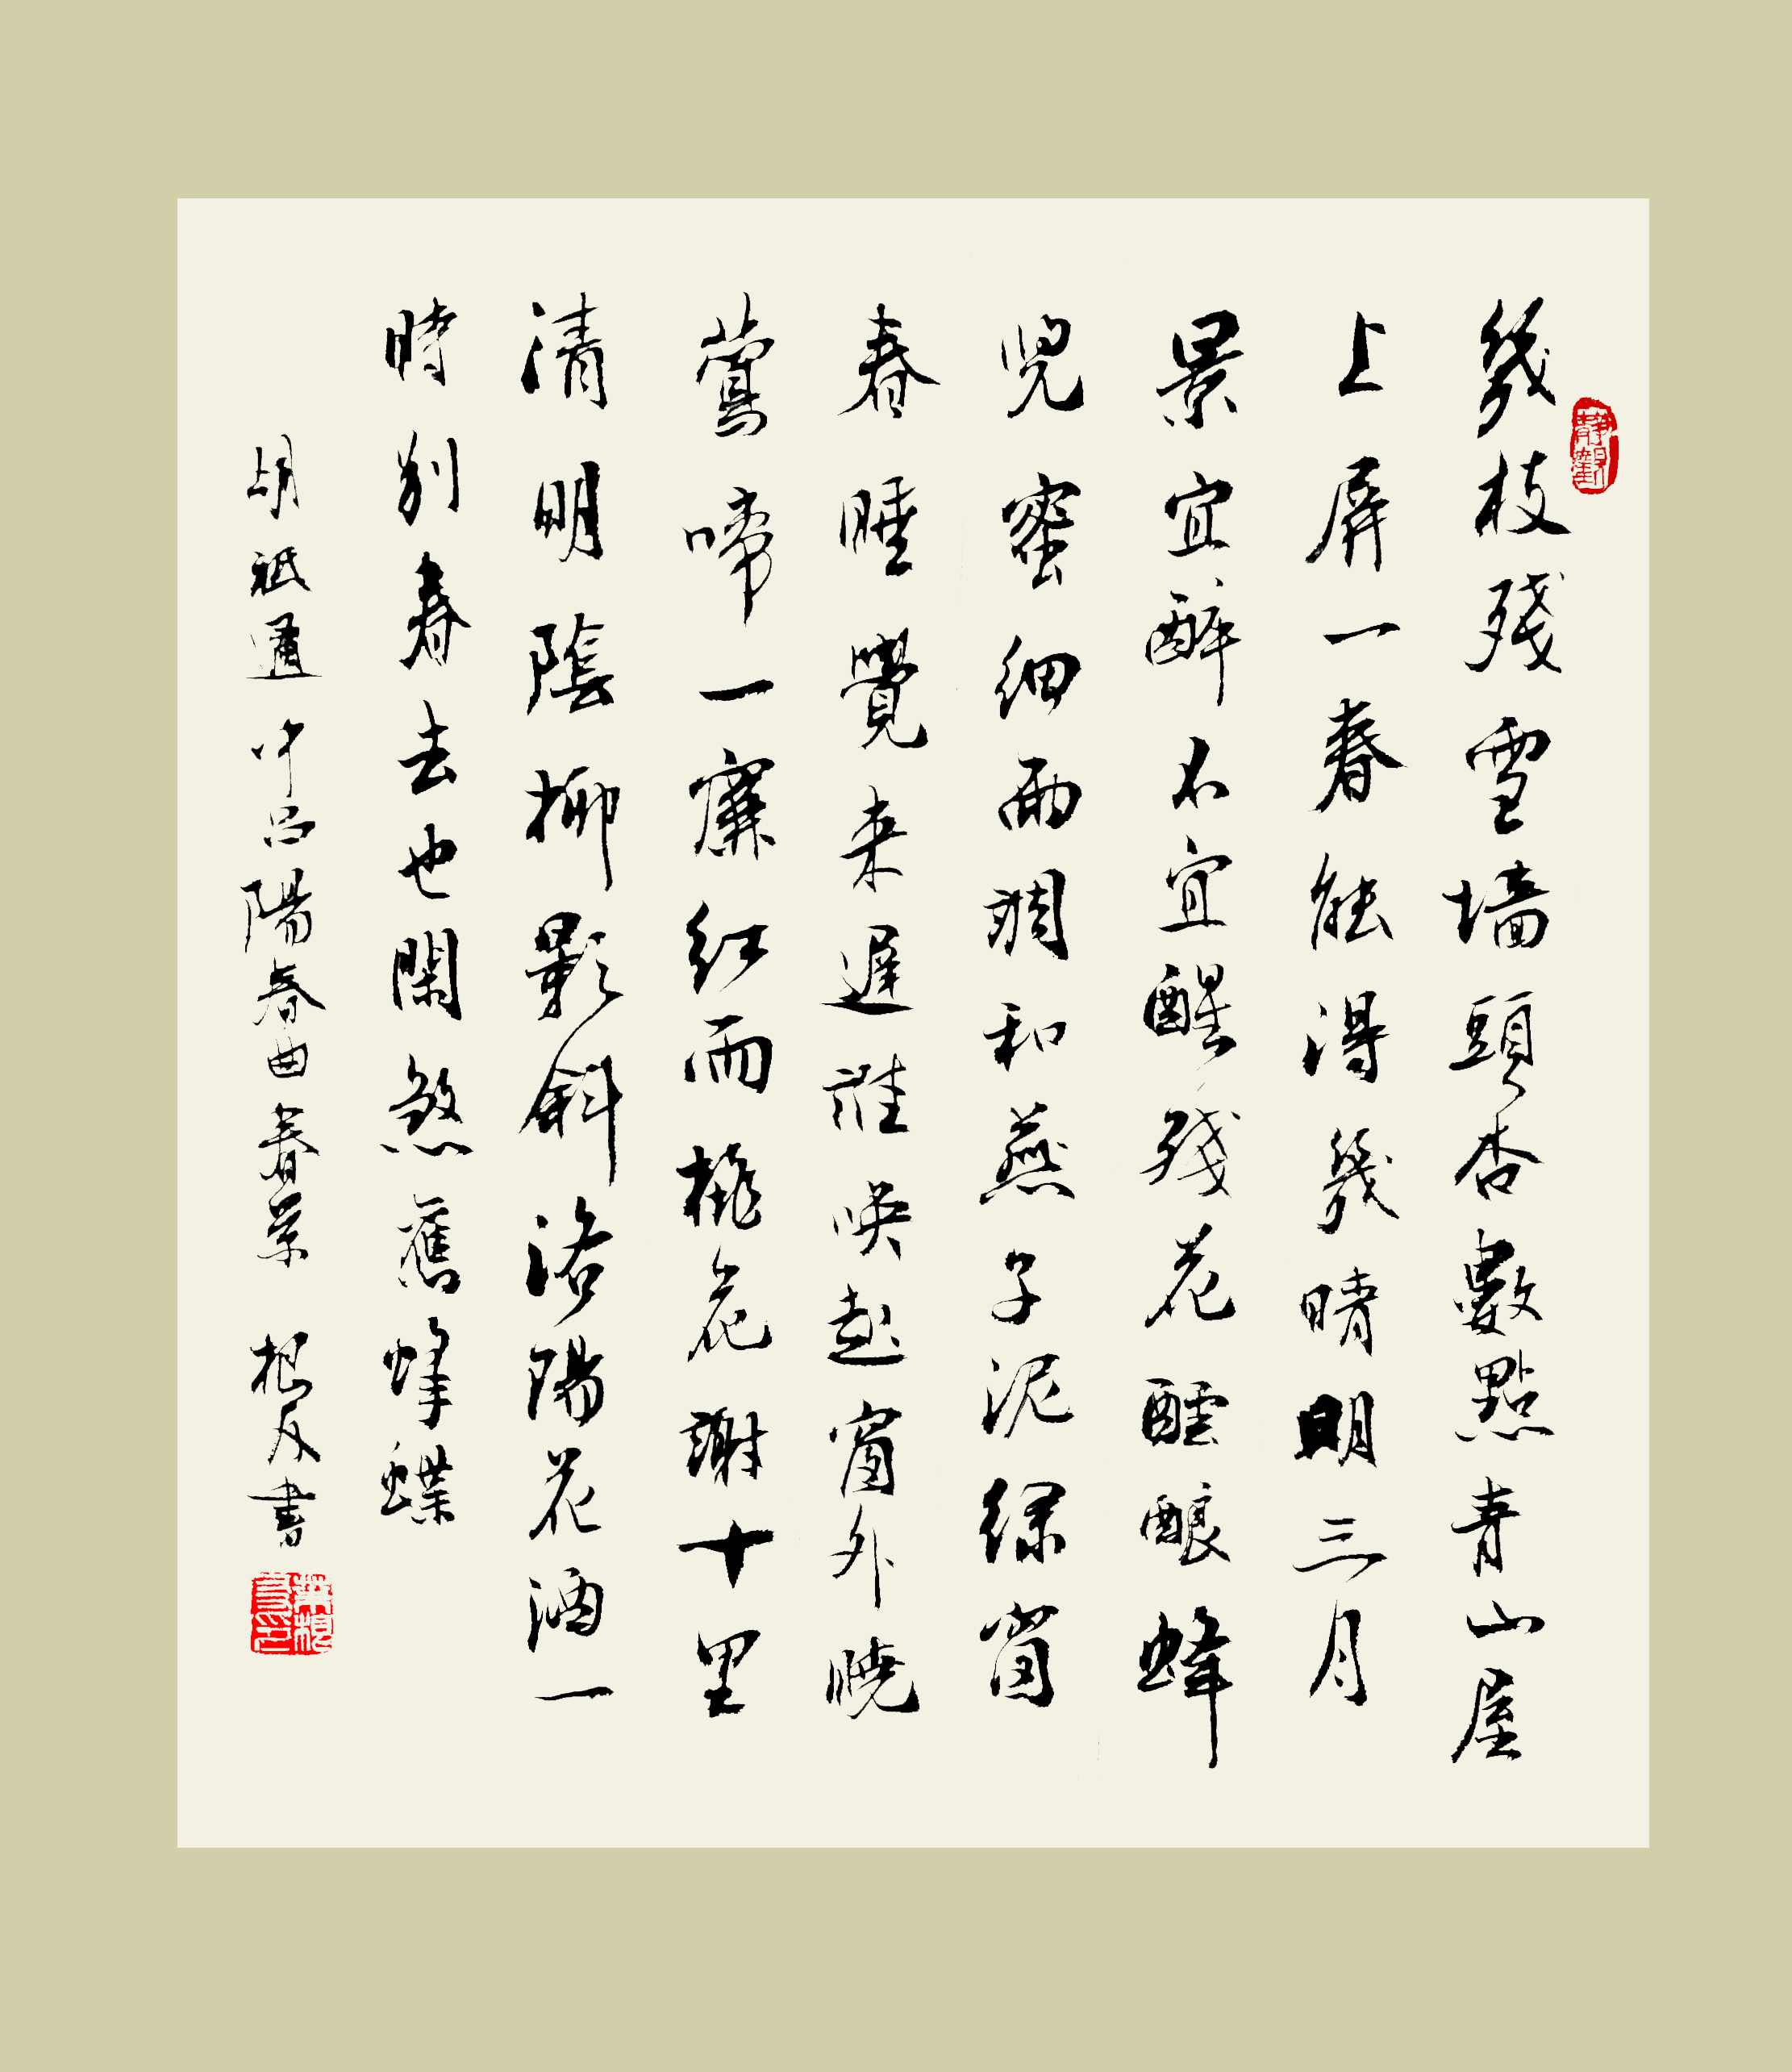 靜觀
幾枝殘雪墻頭杏數點青山屋
上屏一春能得幾晴明三月
景宜醉不宜醒殘花醖酿蜂
兒蜜細雨調和燕子泥緑窗
春睡覺来遲誰唤起窗外曉
鶯啼一簾紅雨桃花謝十里
清明陰柳影斜洛陽花酒一
時别春去也閑煞舊蜂蝶
胡祗遹中吕陽春曲春景 根友書
葉根友印